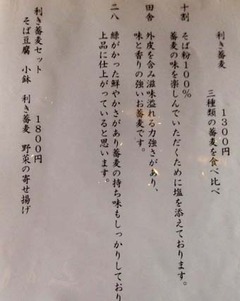 利き蕎麦 1300円
三種類の蕎麦を食べ比べ
十割 そば粉100%
蕎麦の味を楽しんでいただくために塩を添えております。
田舎 外皮を含み滋味溢れる力強さがあり、
味と香りの強いお蕎麦です。
二八 緑がかった鮮やかさがあり蕎麦の持ち味もしっかりしており
上品に仕上がっていると思います。
利き蕎麦セット 1800円
そば豆腐 小鉢 利き蕎麦 野菜の寄せ揚げ